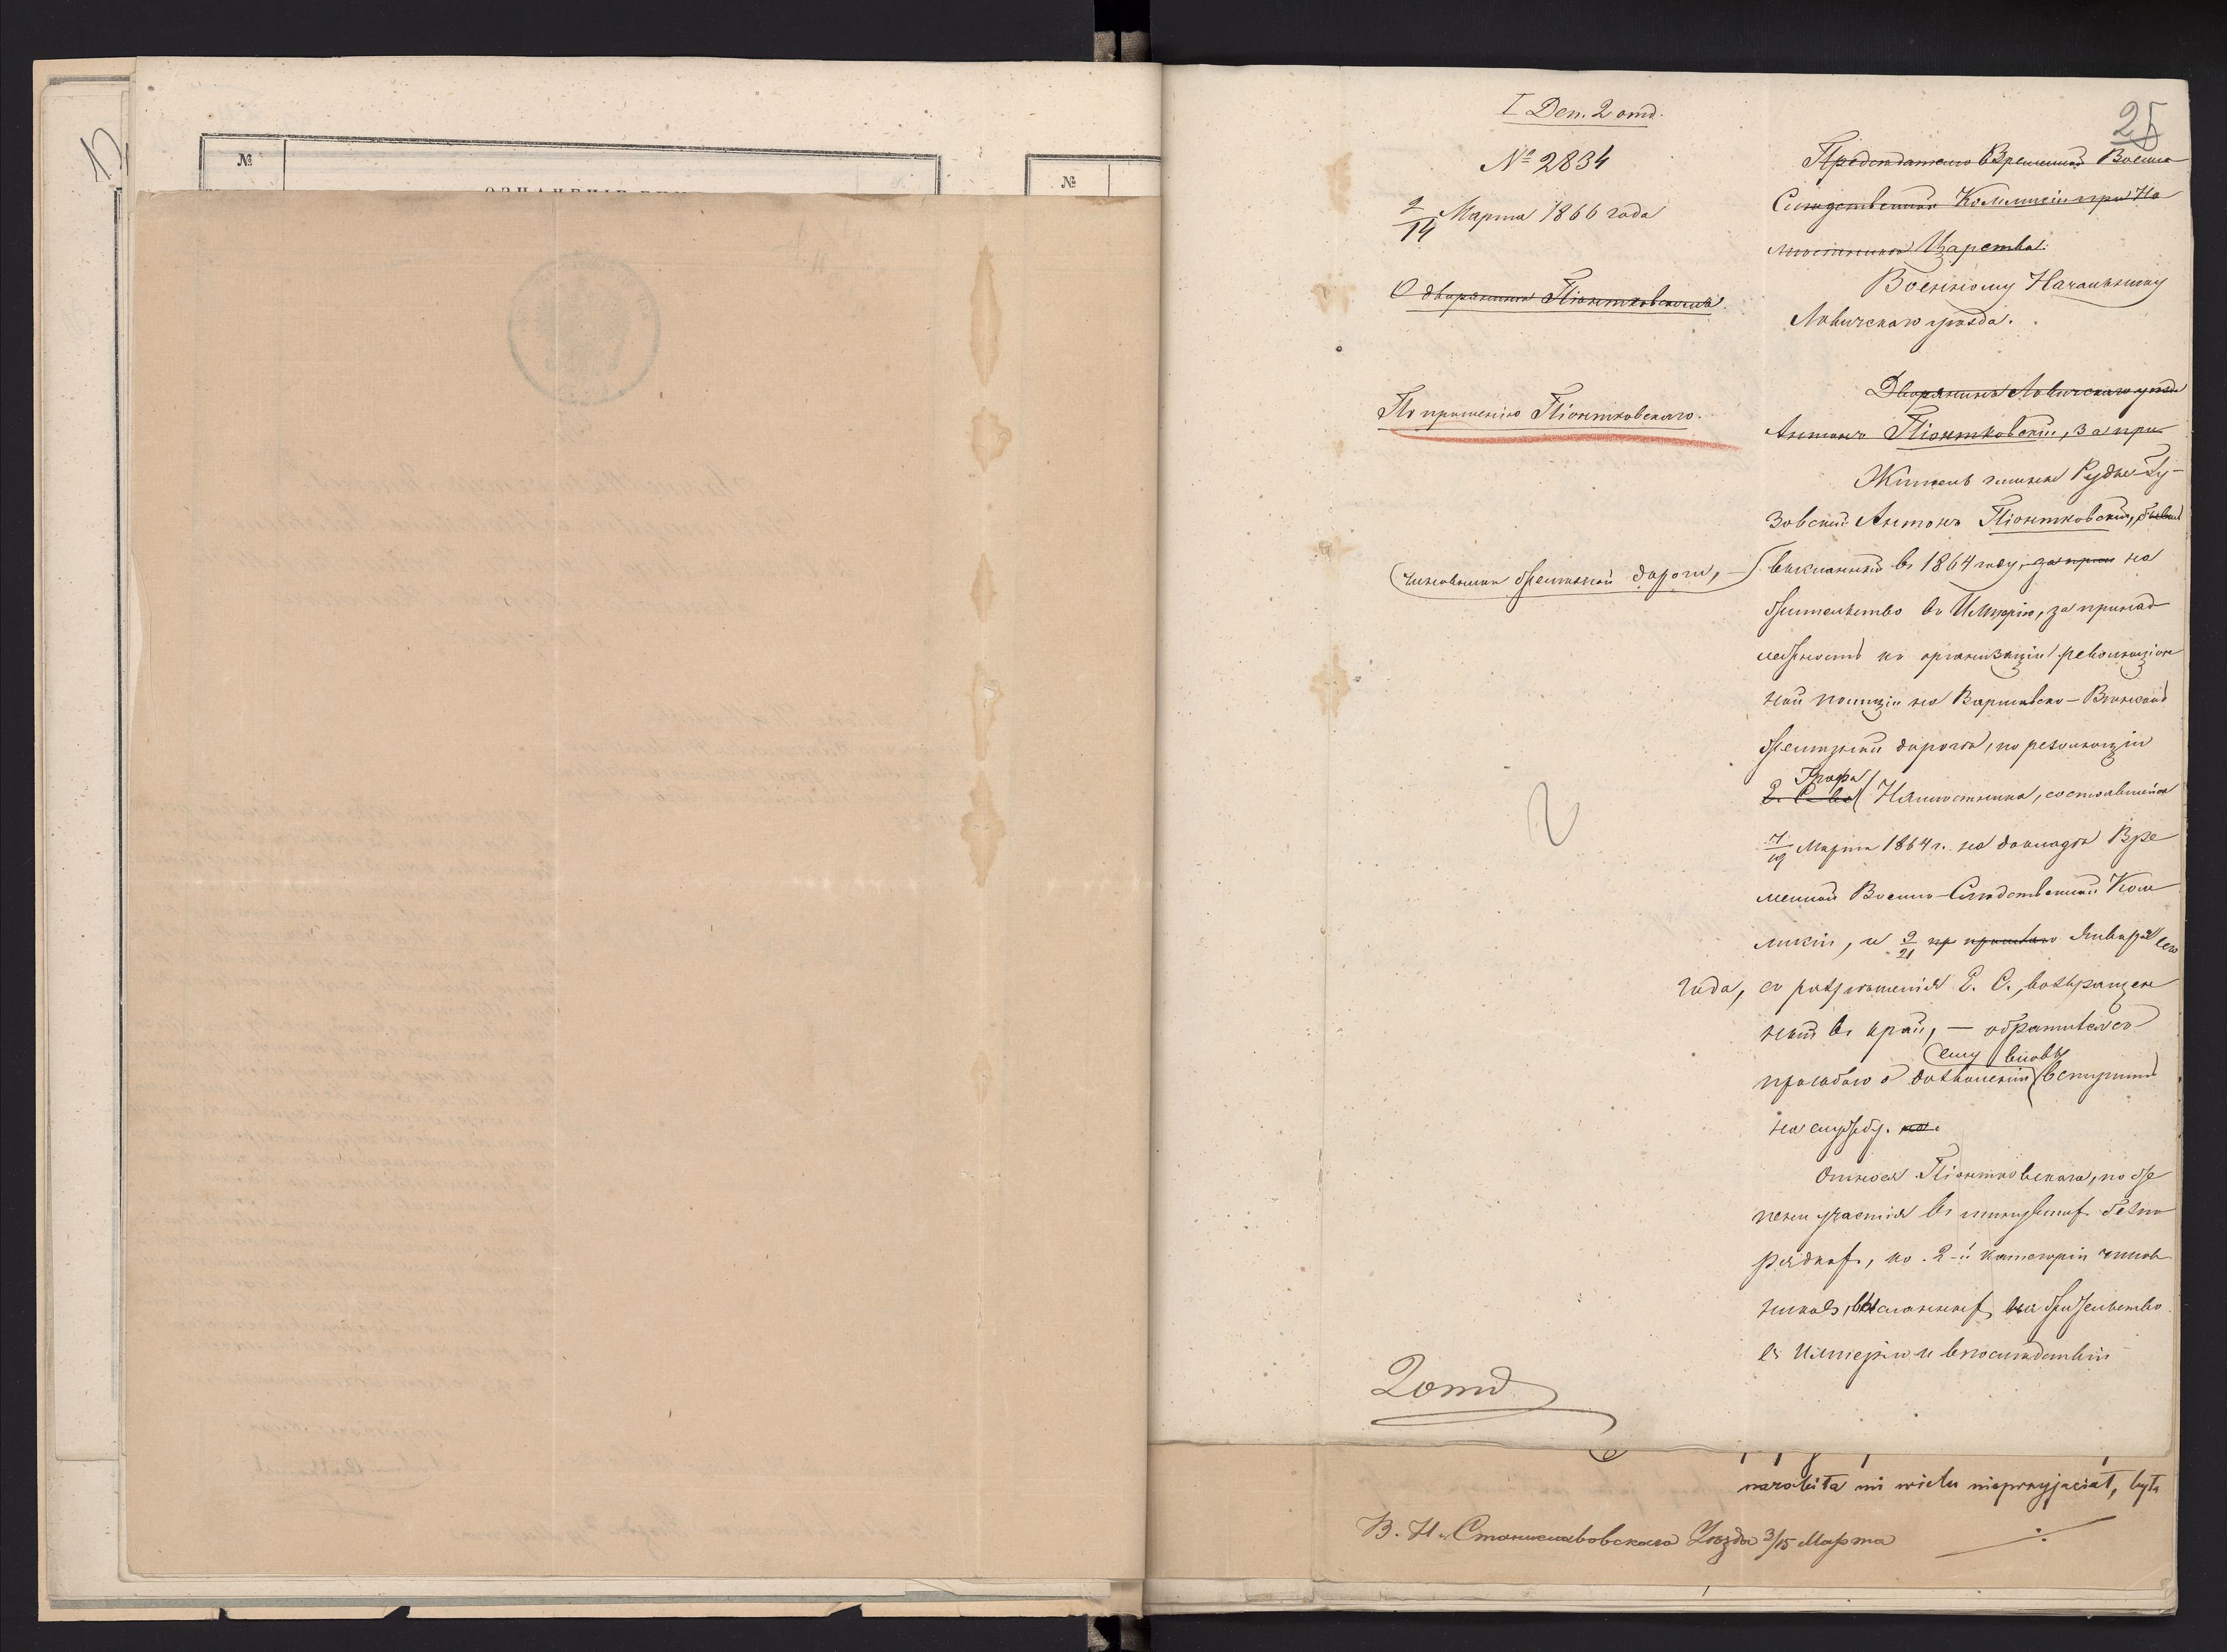 №
№
I Деп. 2 отд.
№ 2834
2/14 Марта 1866 года
О дворянинѣ Піонтковскомъ.
По прошенію Піонтковскаго.
чиновникъ желѣзной дороги,
2 отд
25
Предсѣдателю Временной Военно
Слѣдственной Коммисіи при На
мѣстникѣ Царства.
Военному Начальнику
Ловичскаго уѣзда.
Дворянинъ Ловичскаго уѣзда
Антонъ Піонтковскій, за при
Житель гмины Рудно-Гу-
зовской Антонъ Піонтковскій,
высланный въ 1864 году, за прин на
жительство въ Имперію, за принад
лежность къ организаціи революціон
ной полиціи на Варшавско-Вѣнской
желѣзной дорогѣ, по резолюціи
Графа
Е. С-ва Намѣстника, состоявшейся
7/19 Марта 1864 г. на докладѣ Вре
менной Военно-Слѣдственной Ком
мисіи, и 9/21 Января сего
года, съ разрѣшенія Е. С., возвращен
ный въ край, — обратился съ
ему вновь
просьбою о дозволеніи вступить
на службу.
Относя Піонтковскаго, по сте
пени участія въ минувшихъ безпо
рядкахъ, ко 2-й категоріи чинов
никовъ, высланныхъ на жительство
въ Имперію и впослѣдствіи
narobiła mi wielu nieprzyjaciół, był
В. Н. Станиславовскаго Уѣзда 3/15 Марта